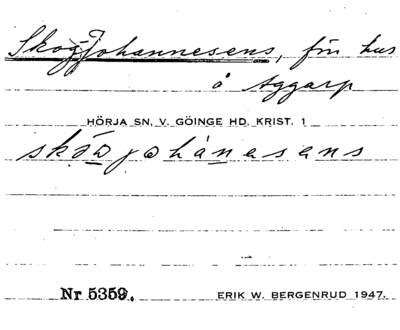 Skog-Johannesens, fin hus
å Aggarp
HÖRJA SN, V. GÖINGE HD, KRIST. 1
Nr 5359.
ERIK W. BERGENRUD 1947.